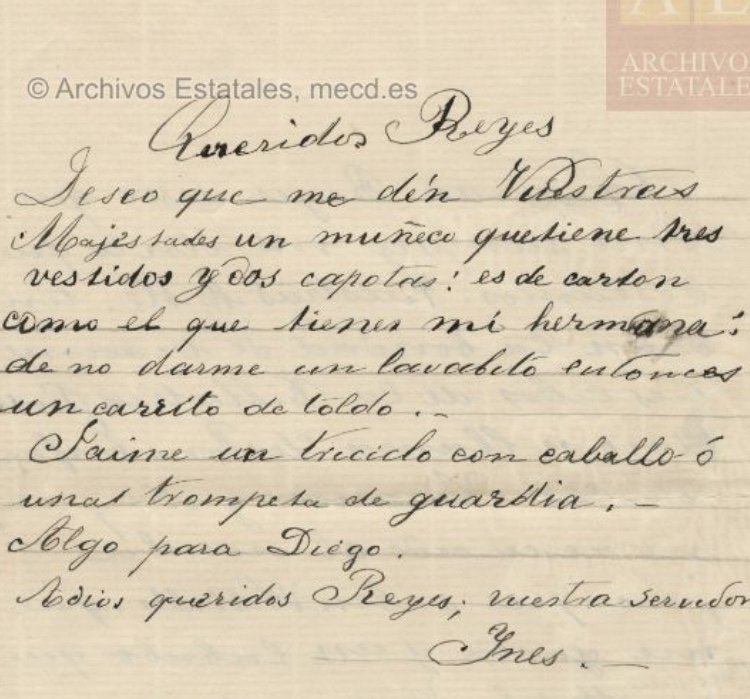 A E
ARCHIVO
ESTATALE
© Archivos Estatales, mecd.es
Queridos Reyes
Deseo que me dén Vuestras
Majestades un muñeco quetiene tres
vestidos y dos capotas: es de carton
como el que tienes mi hermana:
de no darme un lavabito entonces
un carrito de toldo. -
Jaime un triciclo con caballo ó
unas trompeta de guardia. -
Algo para Diego.
Adios queridos Reyes, vuestra servidor
Ynes. -